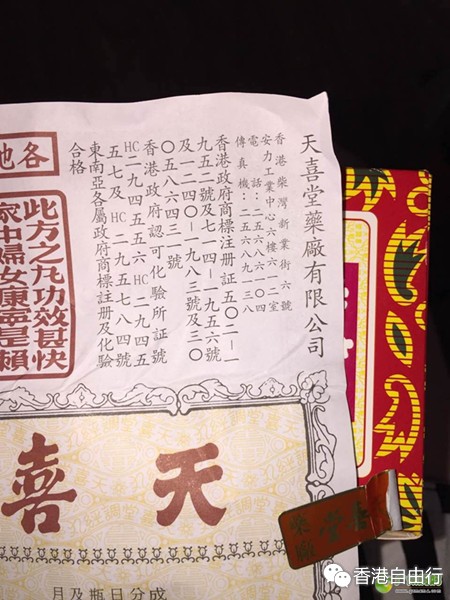 天喜堂藥廠有限公司
香港柴灣新業街六號
安力工業中心六樓六一二室
電話：二五六八六一〇四
傳真機：二五六八九一三八
香港政府商標注册証五〇二—一
九五二號及七一四—一九五六號
及一二四〇—一九八三號及三〇
〇五八六四三號
香港政府認可化驗所証號
HC二九四五五六HC二九四五
五七及HC二九五七八四號
東南亞各屬政府商標註册及化驗
合格
各地
此方之丸功效甚快
家中婦女康寧是賴
天喜
成分日瓶及月
喜堂
藥廠
香港自由行